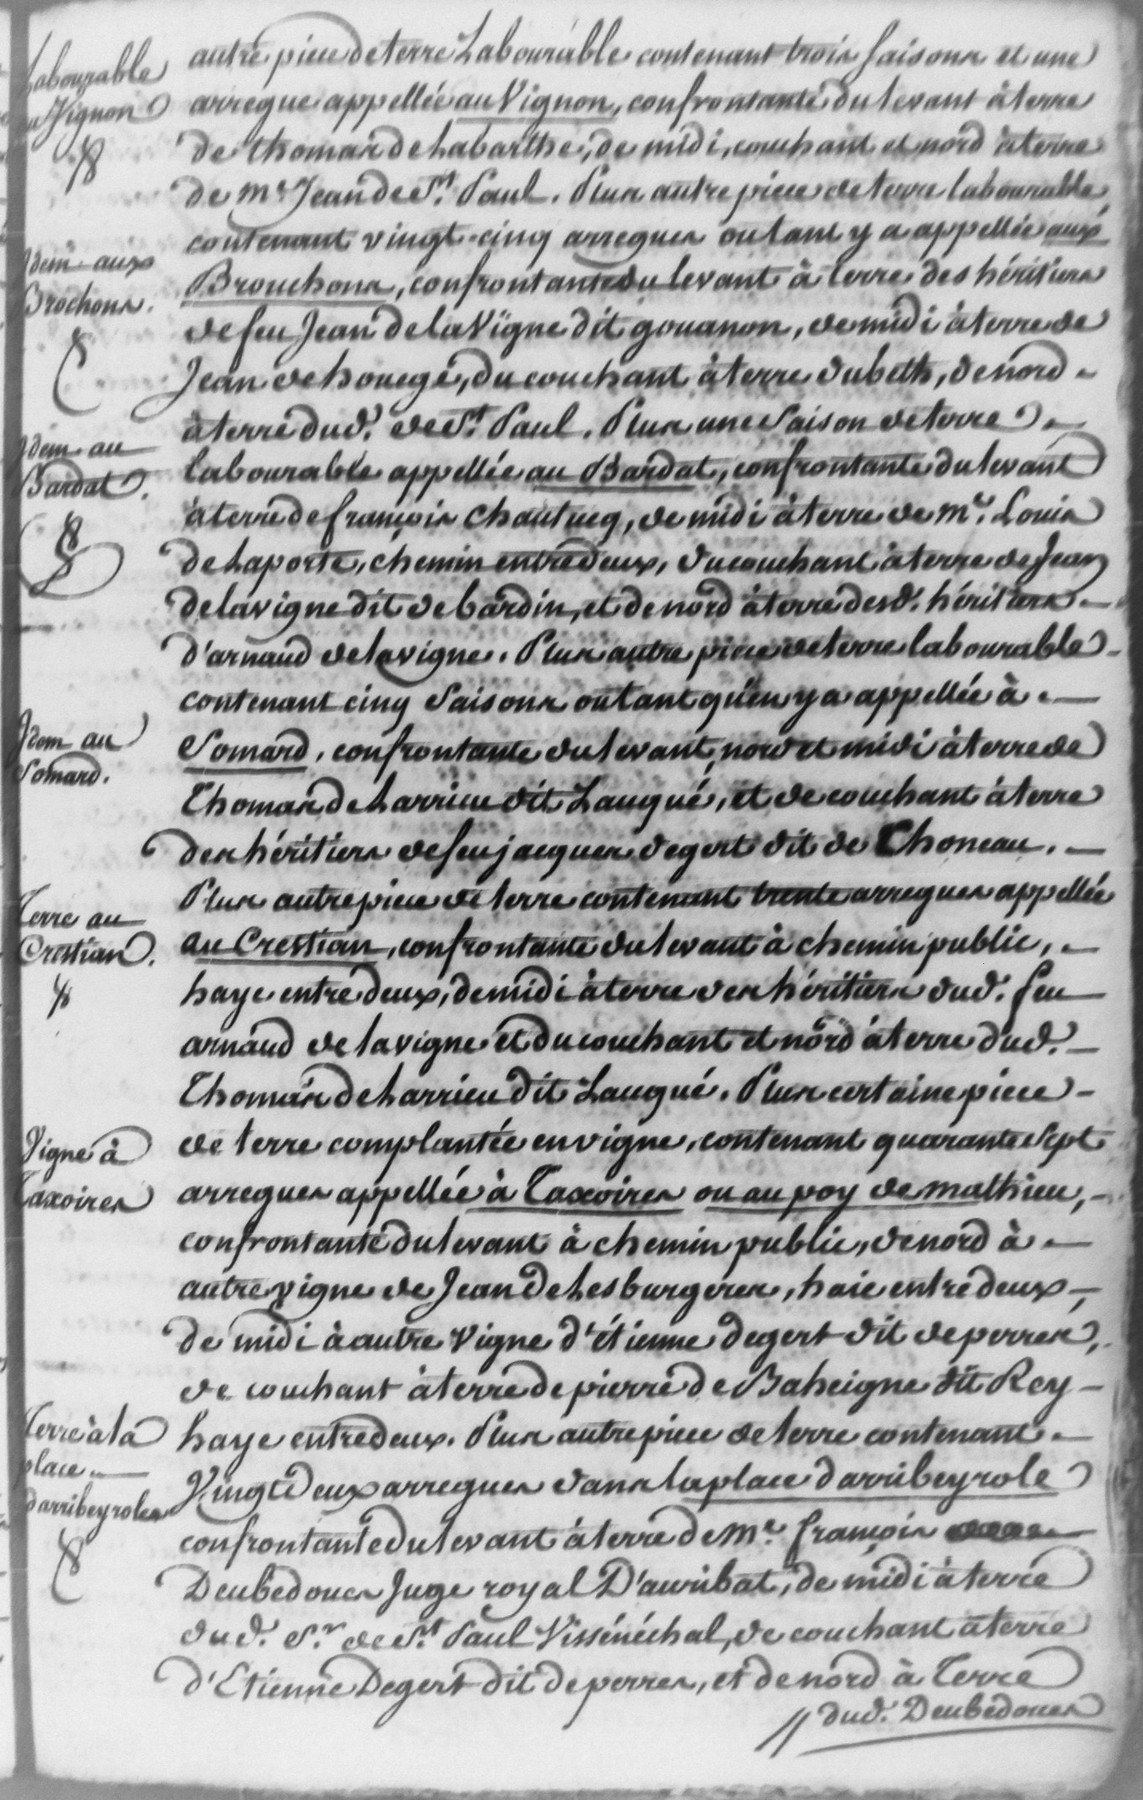 Labourable
au Vignon
autre piece de terre Labourable contenant trois saisons et une
arregue appellée au Vignon, confrontante du levant à terre
de thomas de Labarthe, de midi, couchant et nord à terre
de Mr. Jean de St. Paul. Plus autre piece de terre labourable
contenant vingt-cinq arregues ou tant y a appellée aux
Idem aux
Brochons.
Brouchons, confrontante du levant à terre des héritiers
de feu Jean de la Vigne dit gouanon, de midi à terre de
Jean de houegé, du couchant à terre dubeth, de nord
à terre dud. de St. Paul. Plus une Saison de terre
Idem au
Bardat.
labourable appellée au Bardat, confrontante du levant
à terre de françois Chautucq, de midi à terre de mr. Louis
de Laporte, chemin entredeux, du couchant à terre de Jean
de lavigne dit de bardin, et de nord à terre desd. héritiers
d'arnaud de lavigne. Plus autre piece de terre labourable
contenant cinq Saisons ou tant qu'en y a appellée à
Idem au
Somard.
Somard, confrontante du levant, nord et midi à terre de
Thomas de Larrieu dit Lauqué, et de couchant à terre
des héritiers de feu jacques degert dit de Choneau.
Terre au
Crestian.
Plus autre piece de terre contenant trente arregues appellée
au Crestian, confrontante du levant à chemin public,
haye entre deux, de midi à terre des héritiers dud. feu
arnaud de lavigne et du couchant et nord à terre dud.
Thomas de Larrieu dit Lauqué. Plus certaine piece
Vigne à
Taxoires
de terre complantée en vigne, contenant quarante sept
arregues appellée à Taxoires ou au poy de mathieu,
confrontante du levant à chemin public, de nord à
autre vigne de Jean de Lesburgeres, haie entre deux,
de midi à autre Vigne d'étienne degert dit de perres,
de couchant à terre de pierre de Baheigne dit Rey
Terre à la
place
d'arribeyroles
haye entredeux. Plus autre piece de terre contenant
Vingt deux arregues dans la place d'arribeyrole
confrontante du levant à terre de Mr. françois
Deubedoues Juge royal D'auribat, de midi à terre
dud. Sr. de St. Paul Vissénéchal, de couchant à terre
d'Etienne Degert dit de perres, et de nord à Terre
dud. Deubedoues